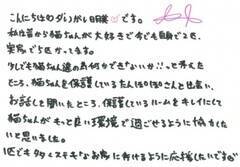 こんにちは
です。
私は昔から猫ちゃんが大好きで今でも自宅で2匹、
実家で5匹かってます。
少しでも猫ちゃん達の為に何かできないか!!って考えた
ところ、猫ちゃんを保護しているたんぽぽさんと出会い、
お話しを聞いたところ、保護しているルームをキレイにして
猫ちゃんがもっと良い環境で過ごせるように協力した
いと思いました。
1匹でも多くステキなお家に行けるように応援したいです